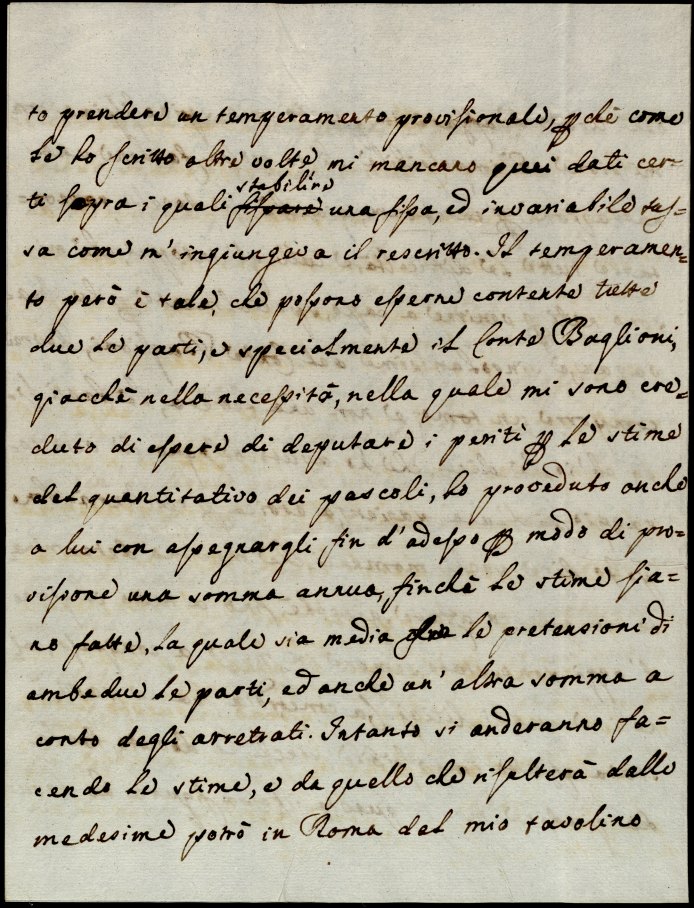 to prendere un temperamento provisionale, pchè come
Le ho scritto altre volte mi mancano quei dati cer=
ti sopra i quali
stabilire
fissare una fissa, ed invariabile tas=
sa come m' ingiungeva il rescritto. Il temperamen=
to però è tale, che possono esserne contente tutte
due le parti, e specialmente il Conte Baglioni,
giacchè nella necessità, nella quale mi sono cre=
duto di essere di deputare i periti p le stime
del quantitativo dei pascoli, ho proveduto anche
a lui con assegnargli fin d'adesso p modo di pro=
visione una somma annua, finchè le stime sia=
no fatte, la quale sia media le pretensioni di
ambedue le parti, ed anche un' altra somma a
conto degli arretrati. Intanto si anderanno fa=
cendo le stime, e da quello che risulterà dalle
medesime potrò in Roma del mio tavolino